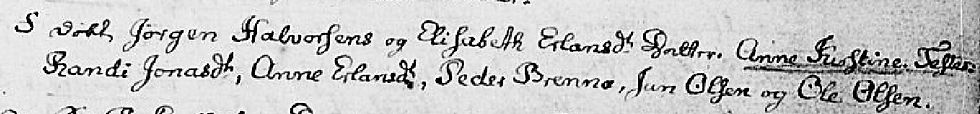 S døbt Jørgen Halvorsens og Elisabeth Erlansdt Datter. Anne Kirstine. Test:
Randi Jonasdt, Anne Erlansdt, Peder Brenne, Jun Olsen og Ole Olsen.